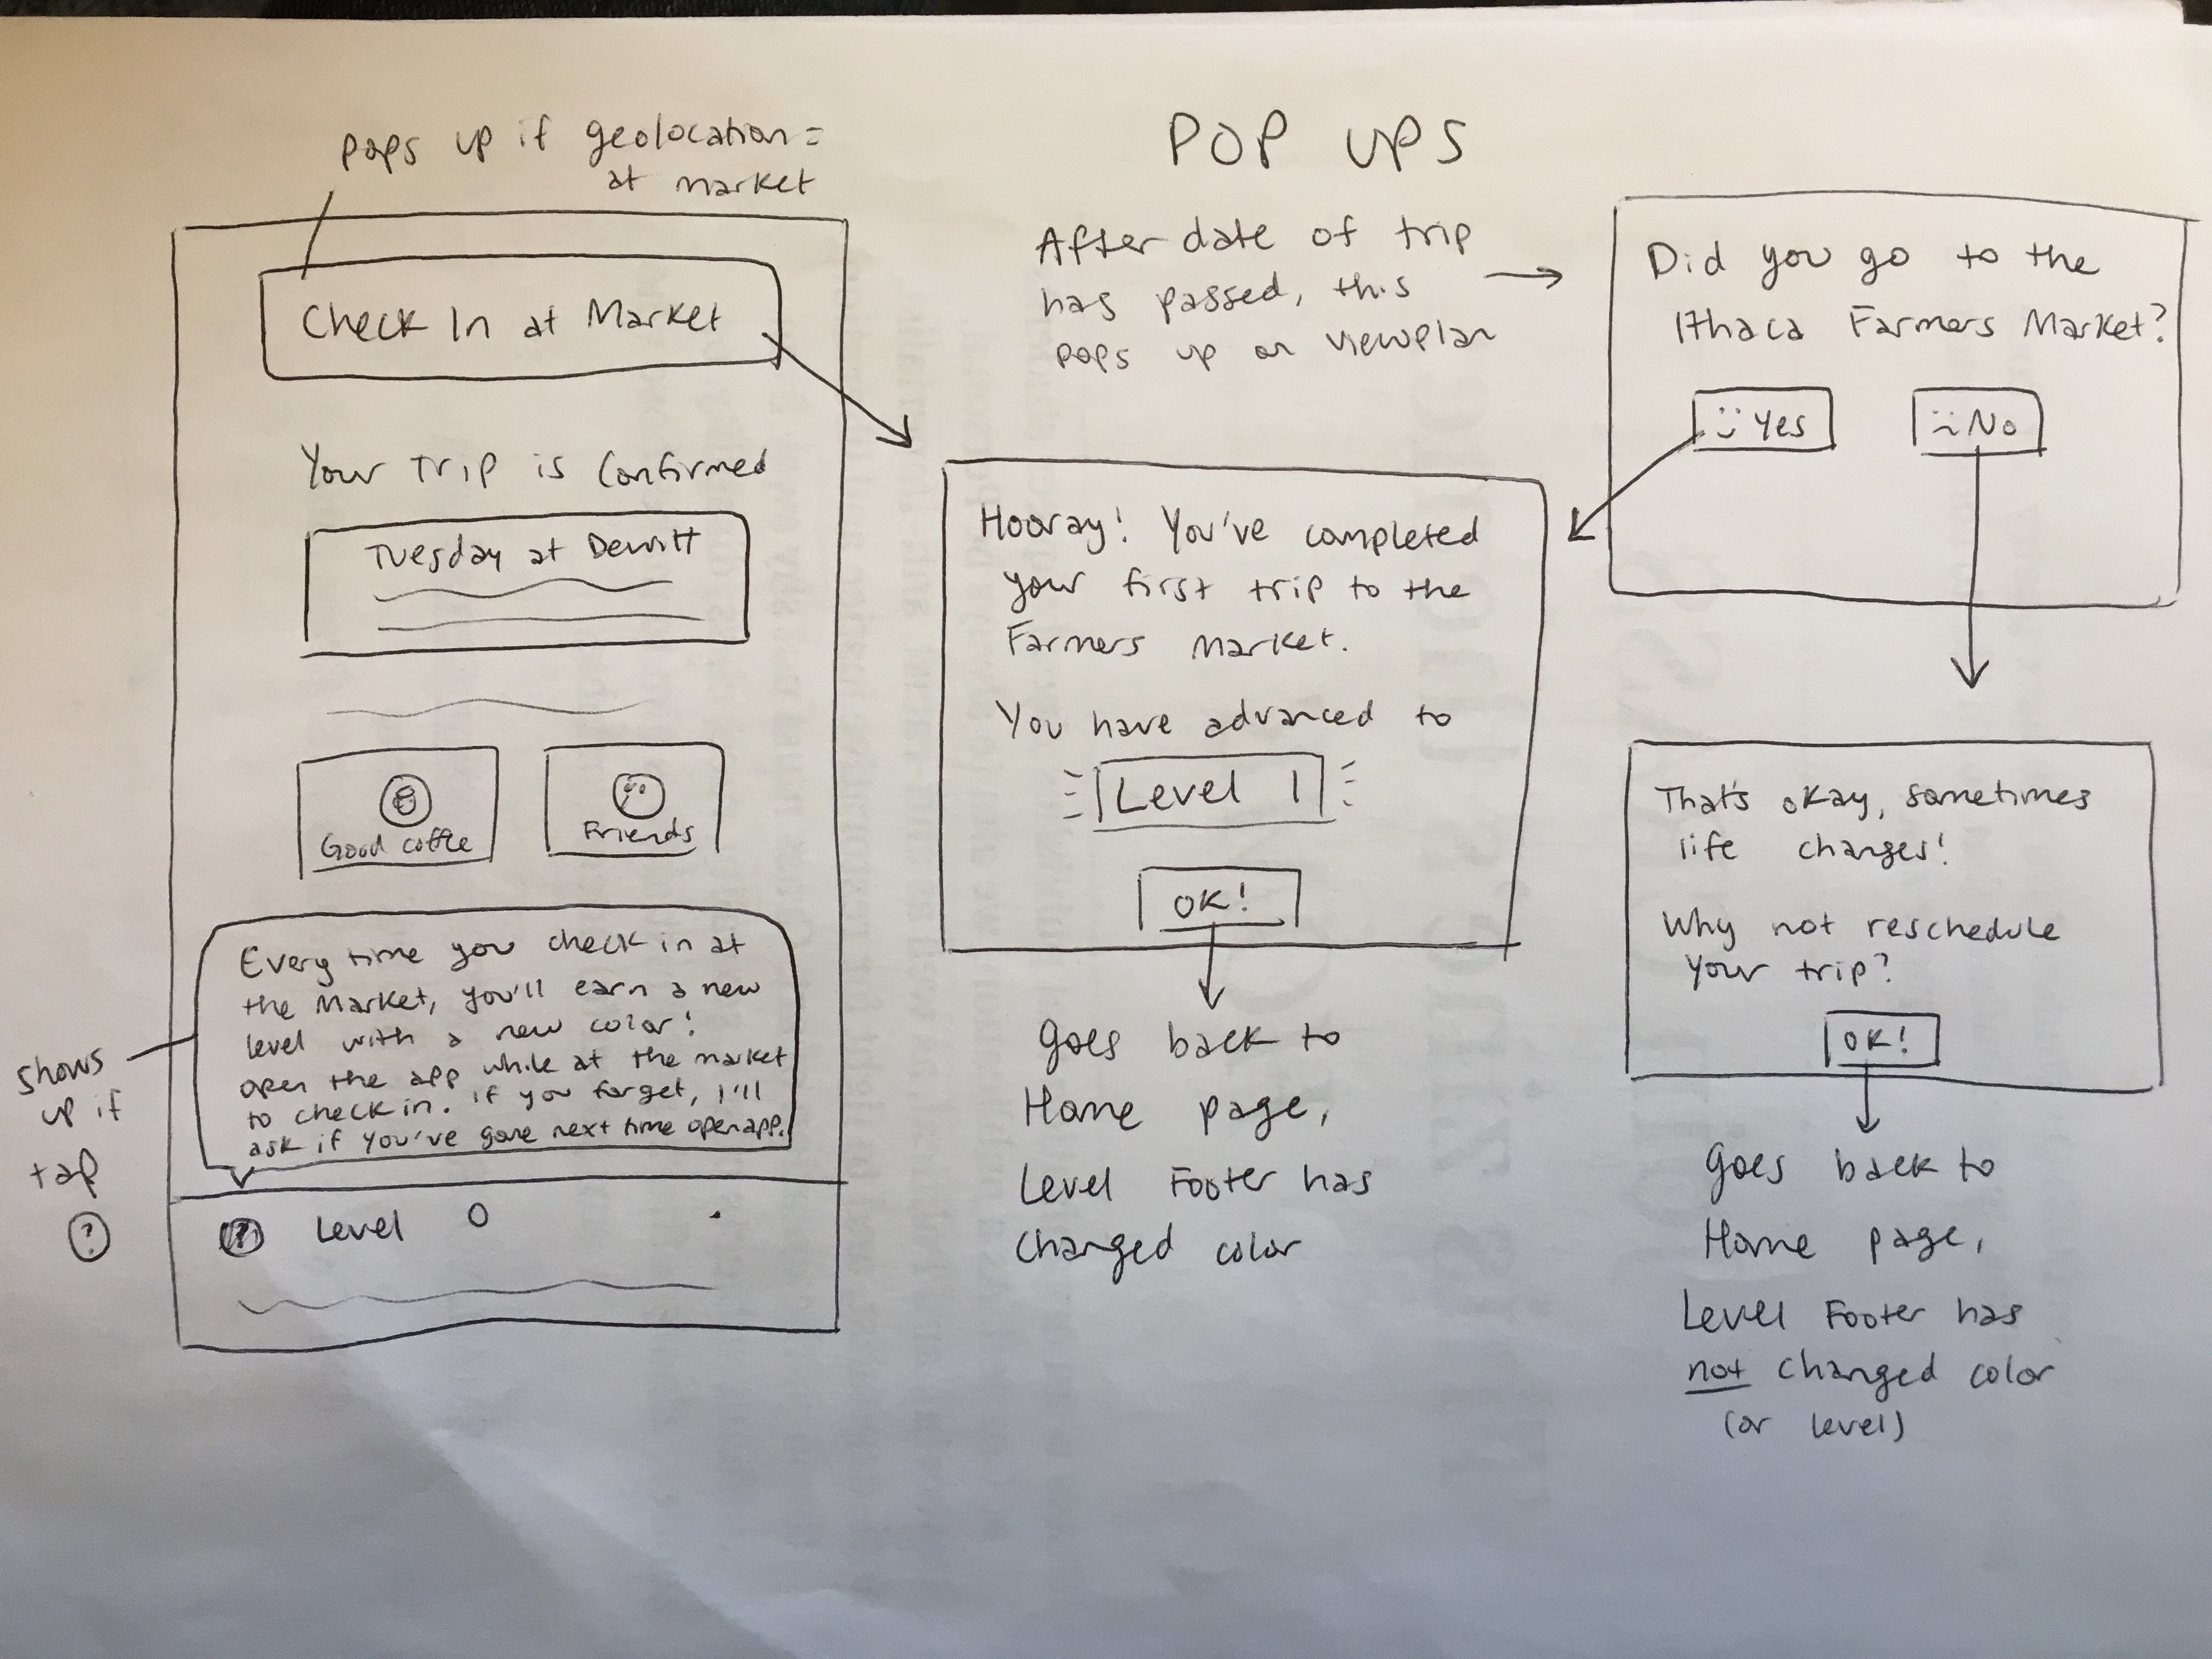 Pops up if geolocation =
at market
Check In at Market
Your Trip is Confirmed
Tuesday at Dewitt
Good coffee
Friends
Every time you check in at
the Market, you'll earn a new
level with a new color!
open the app while at the market
to check in. If you forget, I'll
ask if you've gone next time open app.
shows
up if
tap
?
? Level 0
POP UPS
After date of trip
has passed, this
pops up on viewplan
Did you go to the
Ithaca Farmers Market?
Yes
No
Hooray! You've completed
your first trip to the
Farmers Market.
You have advanced to
Level 1
OK!
goes back to
Home page,
Level Footer has
changed color
That's okay, sometimes
life changes!
Why not reschedule
your trip?
OK!
goes back to
Home page,
Level Footer has
not changed color
(or level)